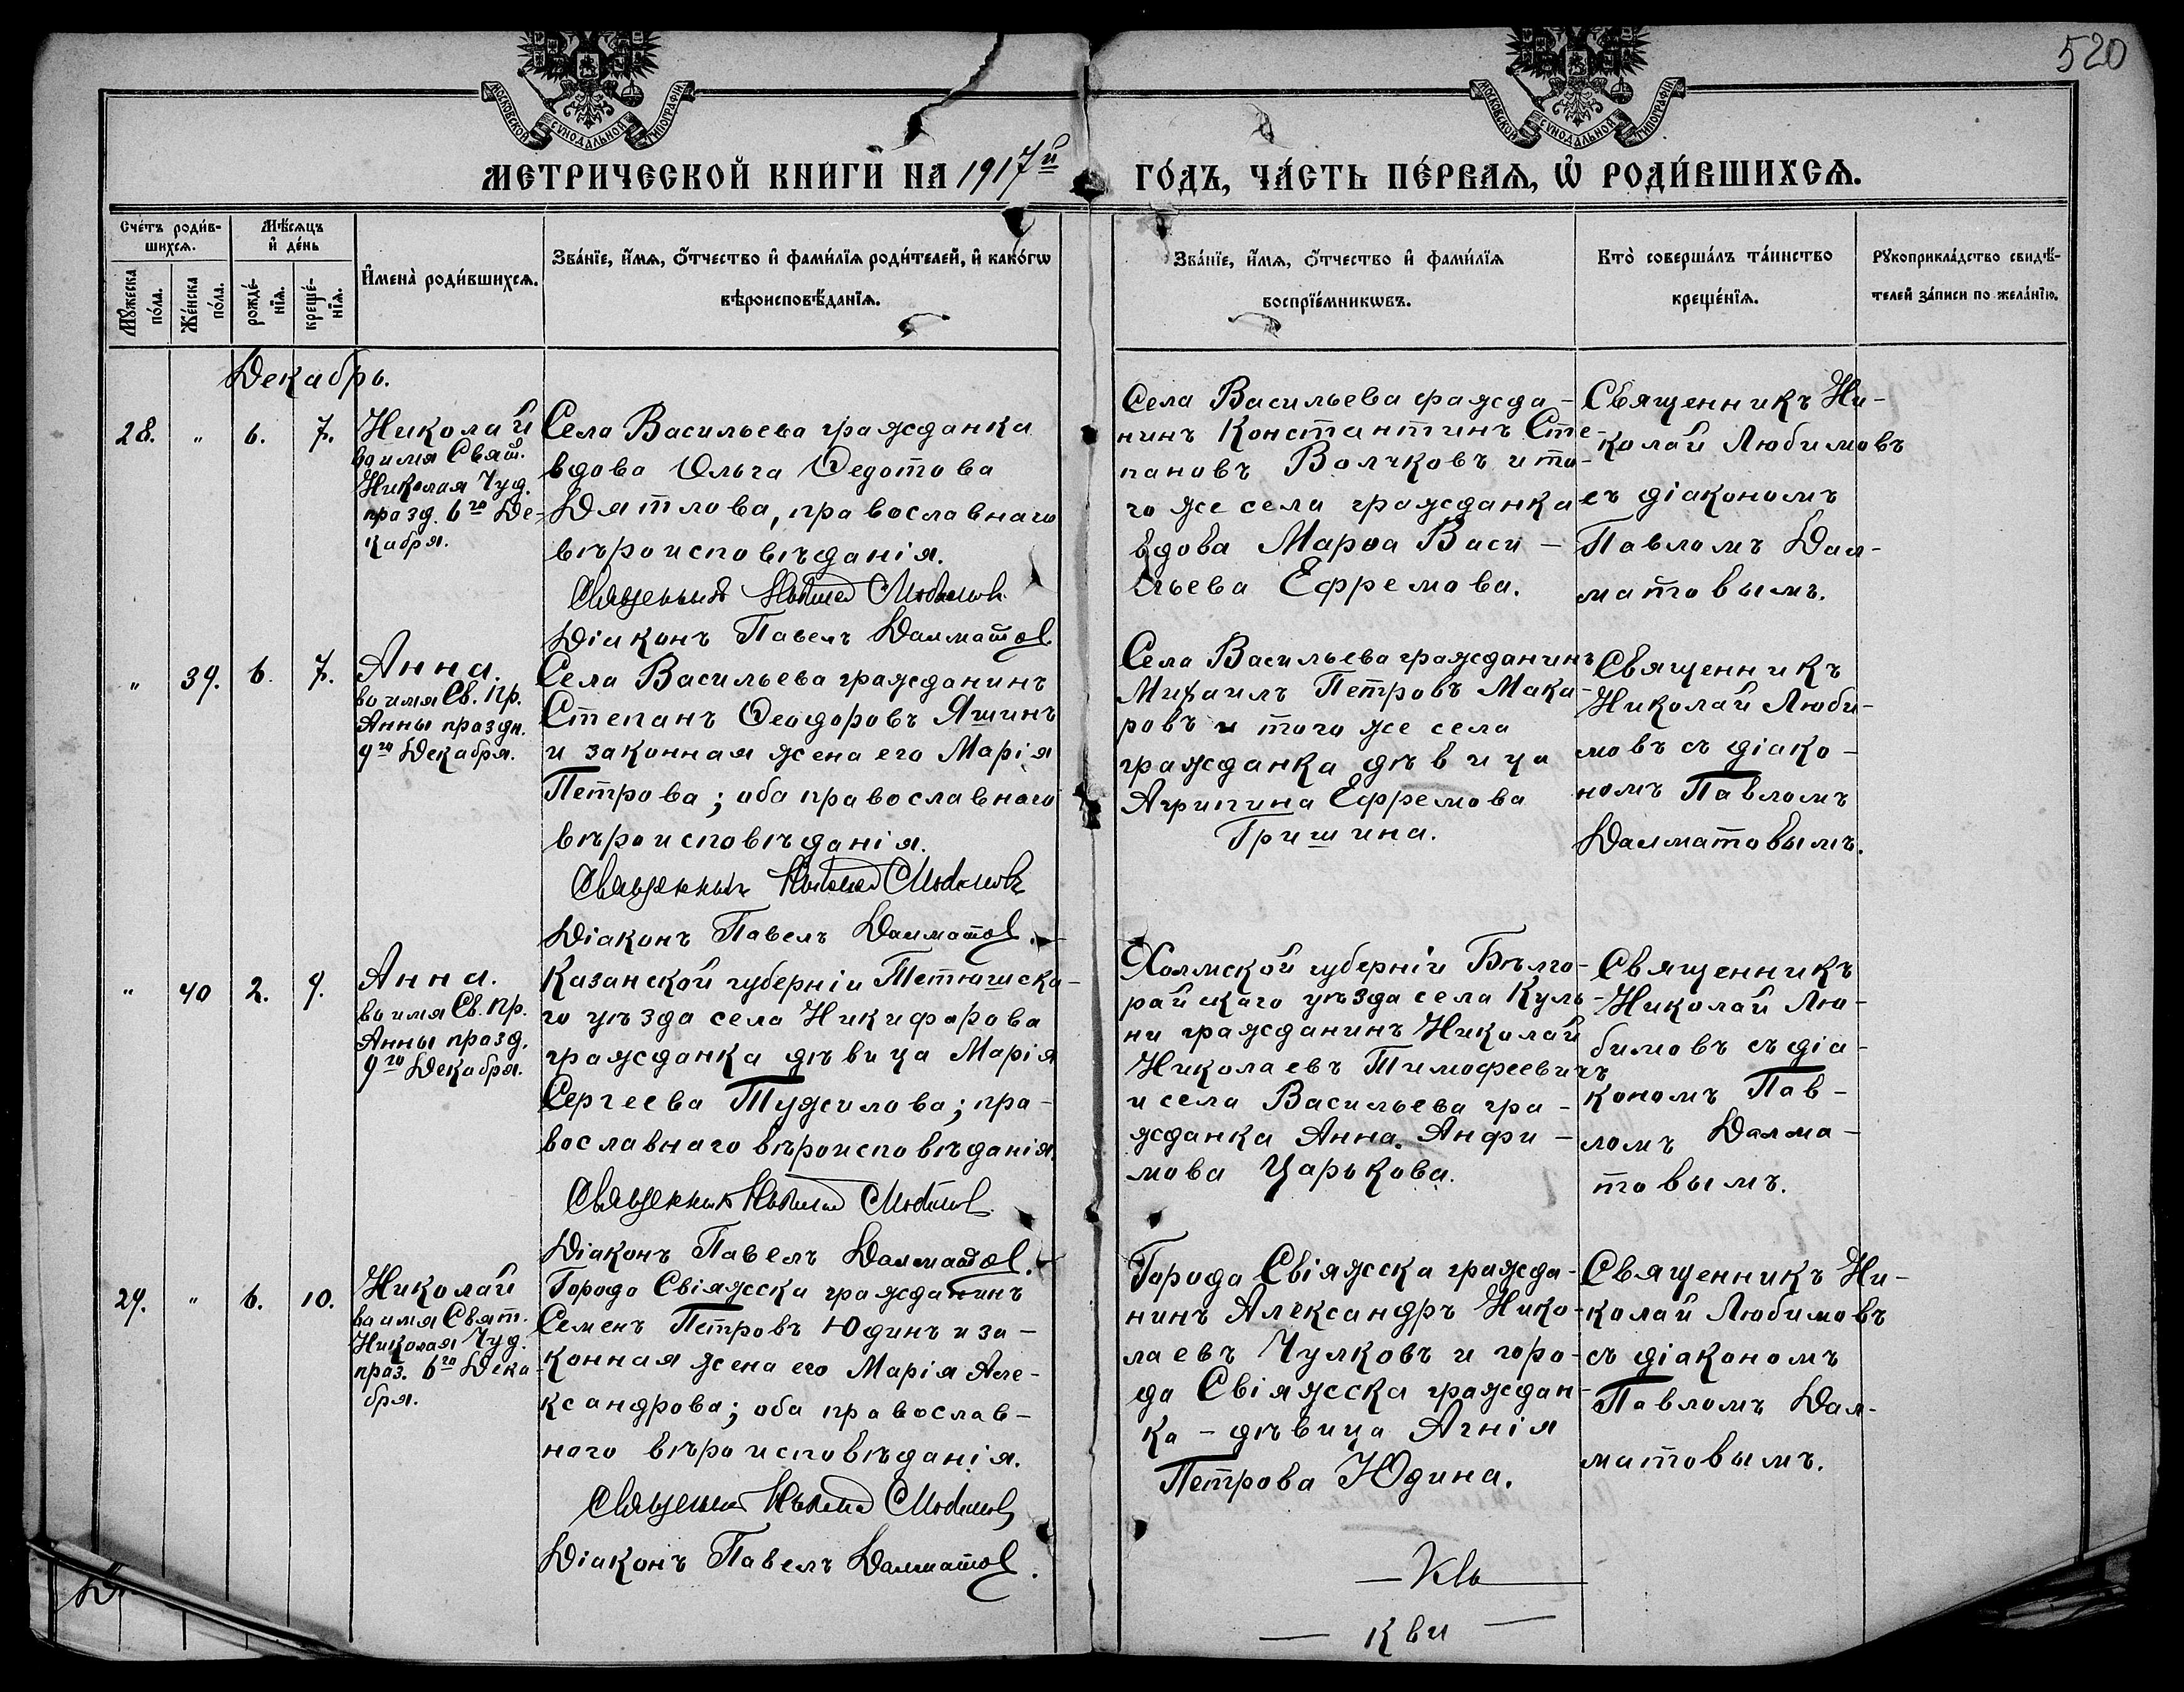 520
МОСКОВСКОЙ СѴНОДАЛЬНОЙ ТИПОГРАФІИ
МОСКОВСКОЙ СѴНОДАЛЬНОЙ ТИПОГРАФІИ
МЕТРИЧЕСКОЙ КНИГИ НА 1917й ГО́ДЪ, ЧА́СТЬ ПЕ́РВАѦ, Ѽ РОДИ́ВШИХСѦ.
Сче́тъ роди́в-
шихсѧ.
Мѣ́сѧцъ
и҆ де́нь
Мꙋ́жеска
по́ла.
Же́нска
по́ла.
рожде́-
нїѧ.
креще́-
нїѧ.
И҆мена̀ роди́вшихсѧ.
Зва́нїе, и҆́мѧ, ѻ҆́тчество и҆ фами́лїѧ роди́телей, и҆ како́гѡ
вѣроисповѣ́данїѧ.
Зва́нїе, и҆́мѧ, ѻ҆́тчество и҆ фами́лїѧ
воспрїе́мникѡвъ.
Кто̀ соверша́лъ та́инство
креще́нїѧ.
Рꙋкоприкла́дство свидѣ́-
телей за́писи по жела́нїю.
Декабрь.
28. " 6. 7.
Николай
во имя Свят.
Николая Чуд.
празд. 6го Де-
кабря.
Села Васильева гражданка
вдова Ольга Ѳедотова
Дятлова, православнаго
вѣроисповѣданія.
Священникъ Николай Любимовъ
Діаконъ Павелъ Далматов
Села Васильева гражда-
нинъ Константинъ Сте-
пановъ Волчковъ и то-
го же села гражданка
вдова Марѳа Васи-
льева Ефремова.
Священникъ Ни-
колай Любимовъ
съ діакономъ
Павломъ Дал-
матовымъ.
" 39. 6. 7.
Анна.
во имя Св. Пр.
Анны праздн.
9го Декабря.
Села Васильева гражданинъ
Степанъ Ѳеодоровъ Яшинъ
и законная жена его Марія
Петрова; оба православнаго
вѣроисповѣданія.
Священникъ Николай Любимовъ
Діаконъ Павелъ Далматов.
Села Васильева гражданинъ
Михаилъ Петровъ Мака-
ровъ и того же села
гражданка дѣвица
Агрипина Ефремова
Гришина.
Священникъ
Николай Люби-
мовъ съ діако-
номъ Павломъ
Далматовымъ.
" 40 2. 9.
Анна.
во имя Св. Пр.
Анны празд.
9го Декабря.
Казанской губерніи Тетюшска-
го уѣзда села Никифорова
гражданка дѣвица Марія
Сергеева Тужилова; пра-
вославнаго вѣроисповѣданія.
Священникъ Николай Любимов
Діаконъ Павелъ Далматов.
Холмской губерніи Бѣлго-
райскаго уѣзда села Куль-
ни гражданинъ Николай
Николаевъ Тимофеевичъ
и села Васильева гра-
жданка Анна Анфи-
мова Царькова.
Священникъ
Николай Лю-
бимовъ съ діа-
кономъ Пав-
ломъ Далма-
товымъ.
29. " 6. 10.
Николай
во имя Свят.
Николая Чуд.
праз. 6го Дека-
бря.
Города Свіяжска гражданинъ
Семенъ Петровъ Юдинъ и за-
конная жена его Марія Але-
ксандрова; оба православ-
наго вѣроисповѣданія.
Священник Николай Любимов
Діаконъ Павелъ Далматов.
Города Свіяжска гражда-
нинъ Александръ Нико-
лаевъ Чулковъ и горо-
да Свіяжска граждан-
ка - дѣвица Агнія
Петрова Юдина.
Священникъ Ни-
колай Любимовъ
съ діакономъ
Павломъ Дал-
матовымъ.